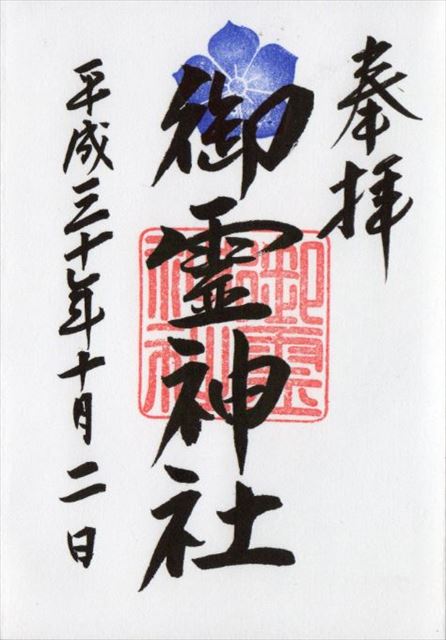 奉拝
御霊神社
御霊神社
平成三十年十月二日